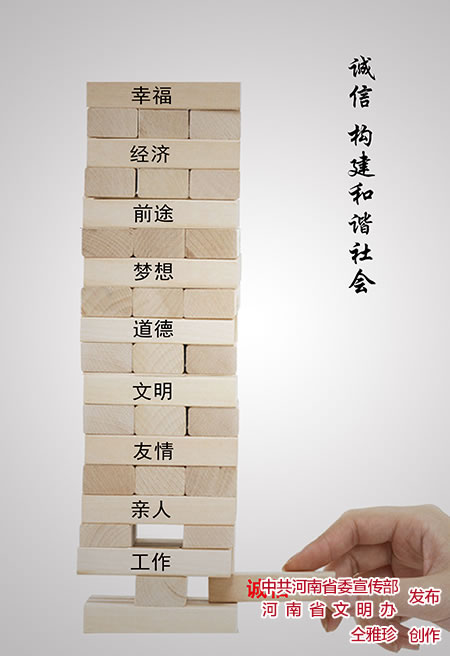 诚信 构建和谐社会
幸福
经济
前途
梦想
道德
文明
友情
亲人
工作
诚信
中共河南省委宣传部
河南省文明办 发布
仝雅珍 创作